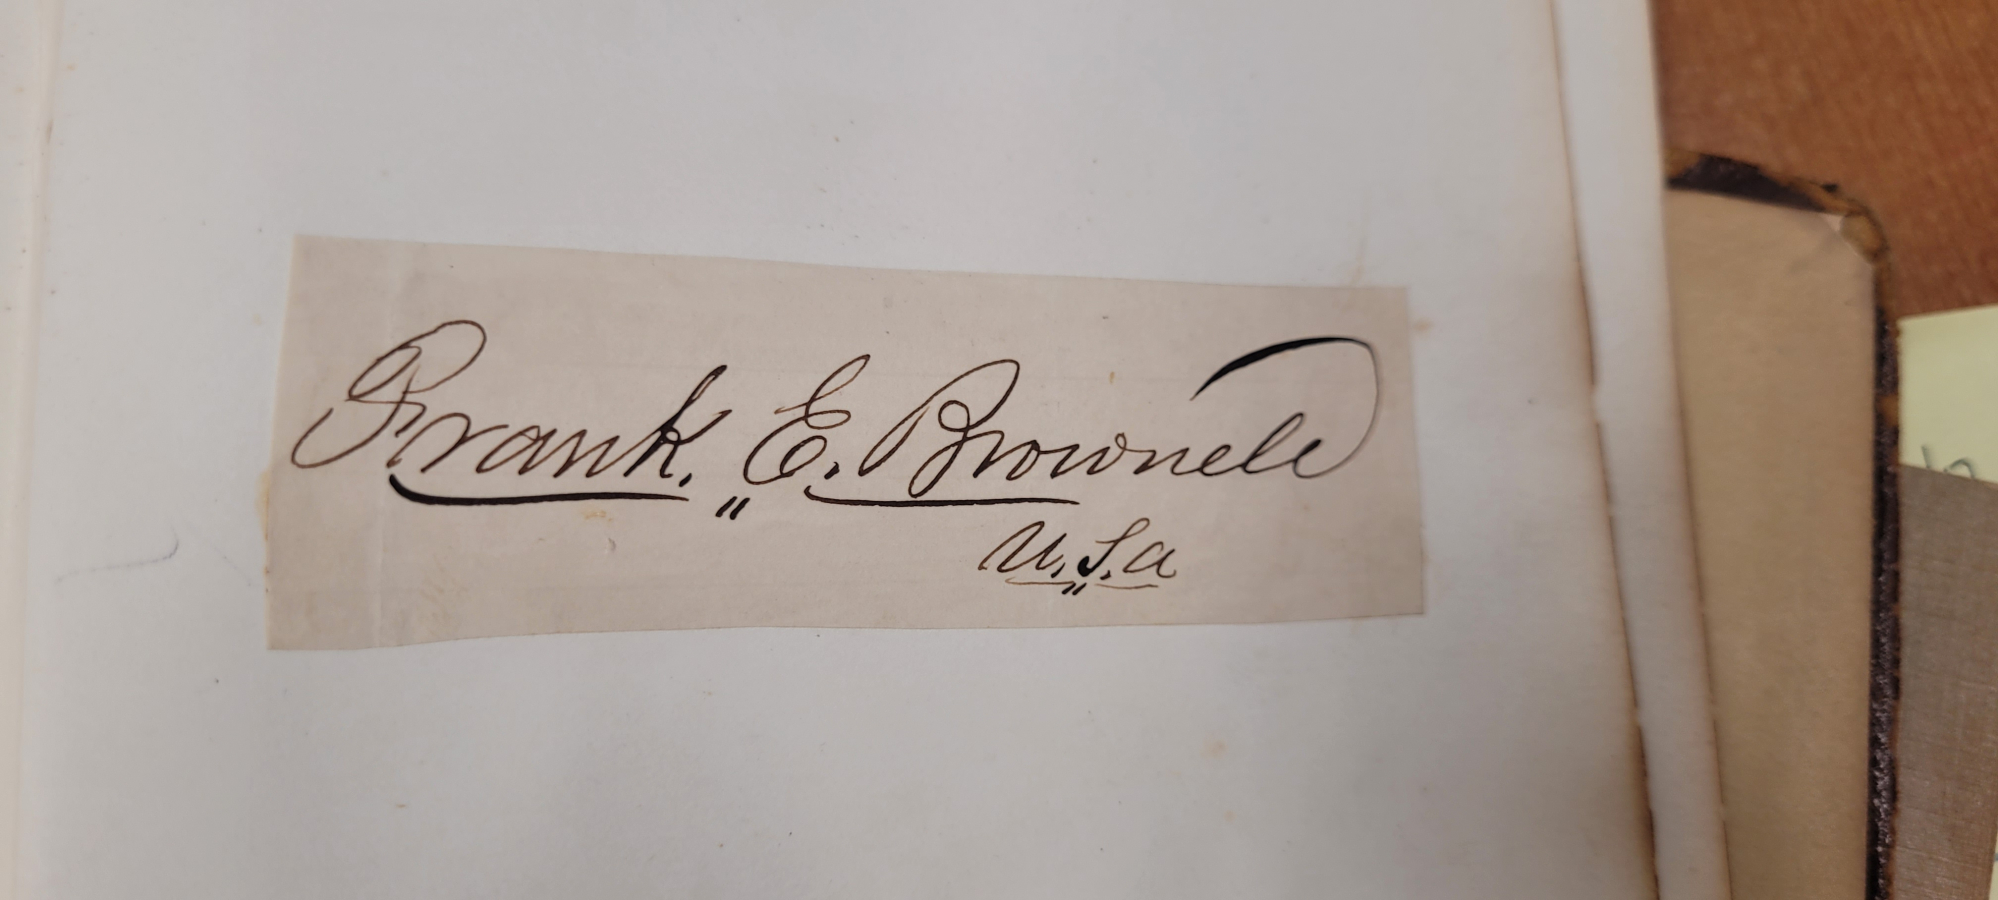 Frank. E. Brownell
U.S.A